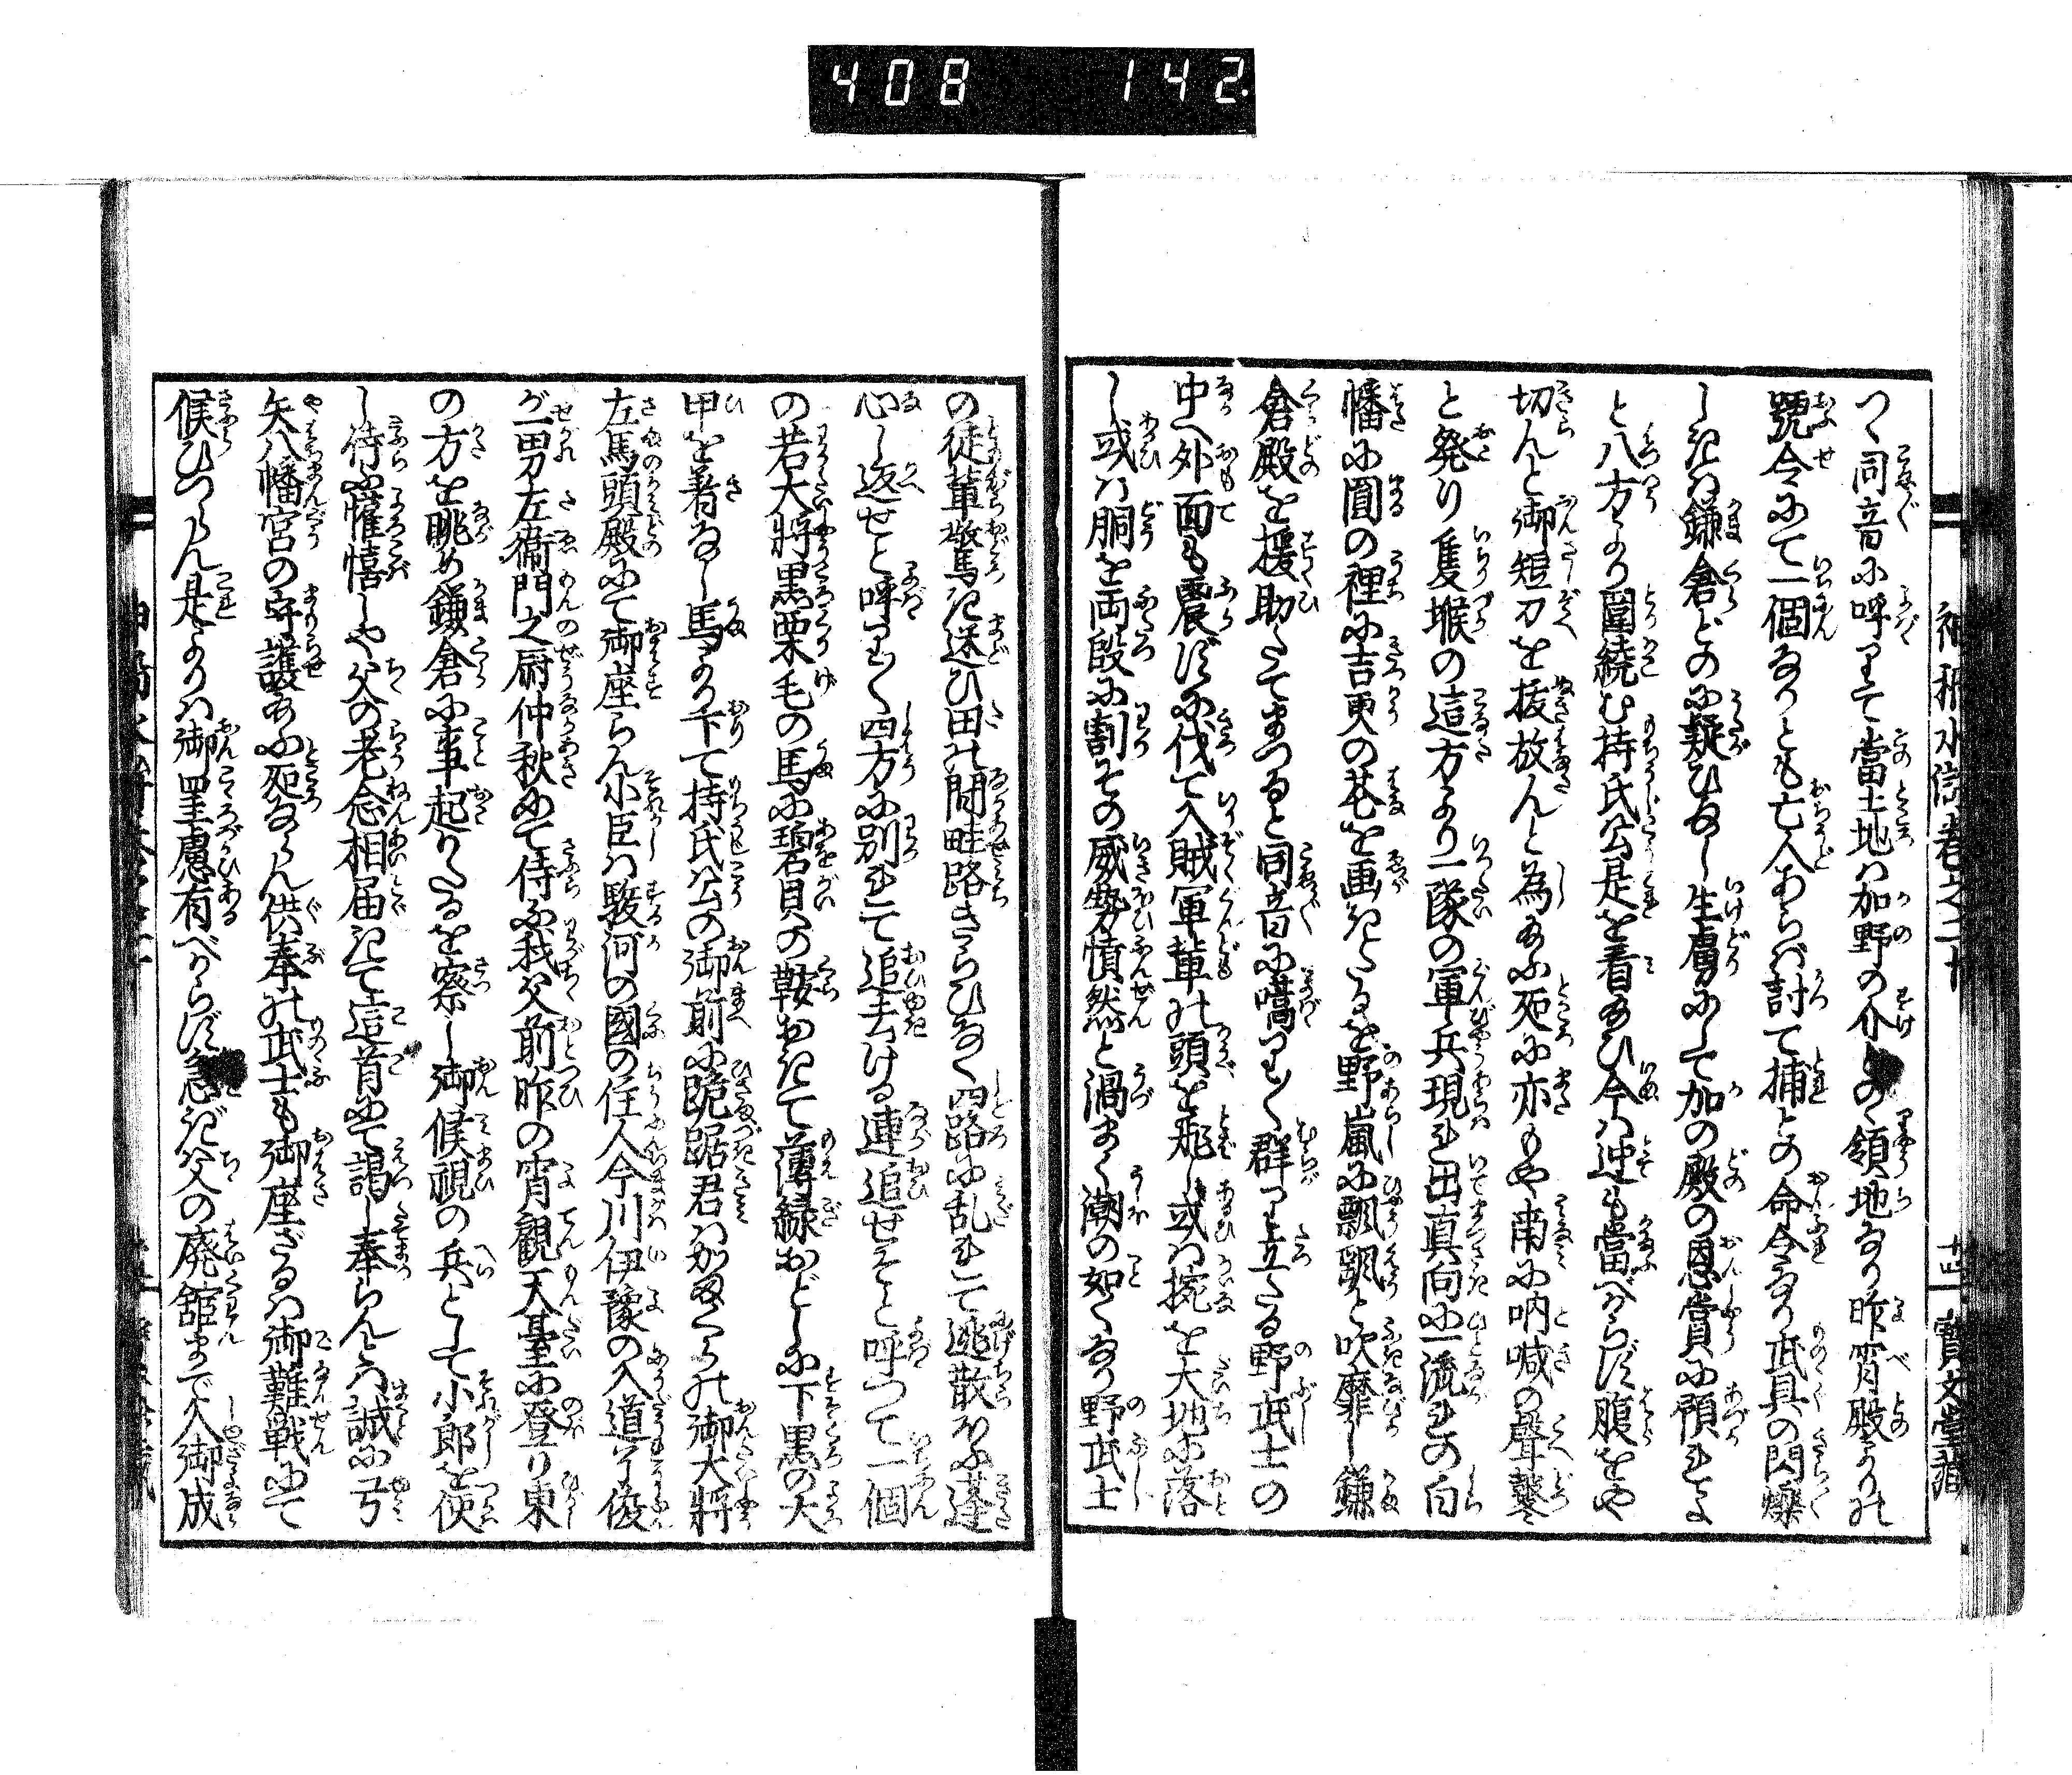 408 142.
つゝ同音に呼りて當土地ハ加野の介どのゝ領地なり昨宵殿よりの
號令にて一個なりとも亡人あらバ討て捕との命令なり武具の閃爍
しきハ鎌倉どのに疑ひなし生虜にして加の殿の恩賞に預れよ
と八方より圍繞む持氏公是を看給ひ今ハ迚も當べからず腹をや
切んと御短刀を抜放んと為給ふ処に亦もや南に吶喊の聲鼕々
と発り隻堠の這方より一隊の軍兵現れ出真向に一流れの白
幡に圓の裡に吉更の花を画きたるを野嵐に飄飄と吹靡し鎌
倉殿を援助たてまつると同音に噪りつく群り立たる野武士の
中へ外面も震ずに伐て入賊軍輩の頭を飛し或ハ捥を大地に落
し或ハ胴を両段に割その威勢憤然と渦まく潮の如くなり野武士
神稲水滸傳巻之二十
寶文堂藏
の徒輩驚き迷ひ田の間畦路きらひなく四路に乱れて逃散たるふ蓬
心し返せと呼りつく四方に別れて追去ける連追せそと呼つて一個
の若大将黒栗毛の馬に碧貝の鞍おきて薄緑おどしに下黒の大
甲を着なし馬より下て持氏公の御前に跪踞君ハかまくらの御大将
左馬頭殿にて御座らん小臣ハ駿河の國の住人今川伊豫の入道了俊
が一男左衞門之尉仲秋にて侍ふ我父前昨の宵觀天臺に登り東
の方を眺め鎌倉に事起りたるを察し御候視の兵として小郎を使
し侍ふ懽憘しや父の老念相届きて這首にて謁し奉らんとハ誠に弓
矢八幡宮の守護給ふ処ならん供奉の武士も御座ざるハ御難戦にて
候ひつらん是よりハ御罣慮有べからず急ぎ父の廃舘まで入御成